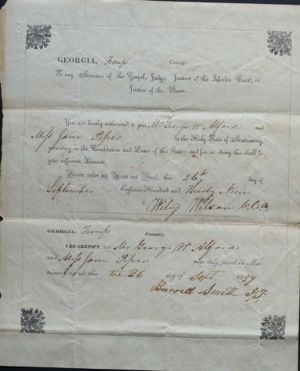 GEORGIA, Troup County.
To any Minister of the Gospel, Judge, Justice of the Inferior Court, or
Justice of the Peace.
You are hereby authorized to join Mr George W Alford and
Miss Jane Piper in the Holy State of Matrimony,
according to the Constitution and Laws of this State; and for so doing this shall be
your sufficient License.
Given under my Hand and Seal, this 26th day of
September Eighteen Hundred and Thirty Nine
Wilson C.C.O.
GEORGIA, Troup County.
I CERTIFY that Mr George W. Alford
and Miss Jane Piper were duly joined in Ma-
trimony by me this the 26 day of Sept 1839
Burrell Smith J.P.